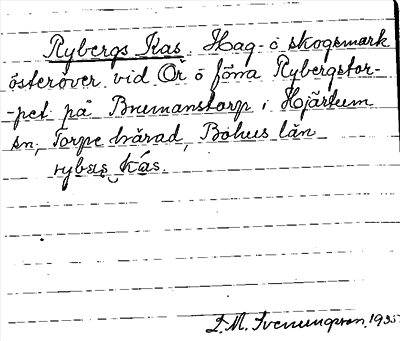 Rybergs Kas. Hag- o skogsmark
österöver vid Ör o förra Rybergstor-
-pet på Brumanstorp i Hjärtum
sn, Torpe härad, Bohus län
rybæs kás.
D.M. Svenungsson, 1935